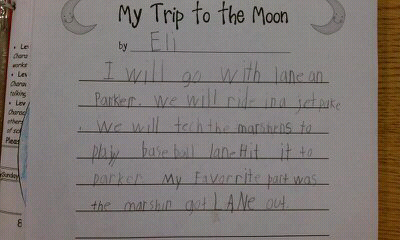 Lev
Chara
works
Lev
Charac
talking
Lev
Charac
others
of sch
Pleas
Sunday
8
My Trip to the Moon
by Eli
I will go with lane an
Parker. we will ride in a jetpake
. We will tech the marshins to
play base ball lane Hit it to
parker My Favorrite part was
the marshin got LANE out